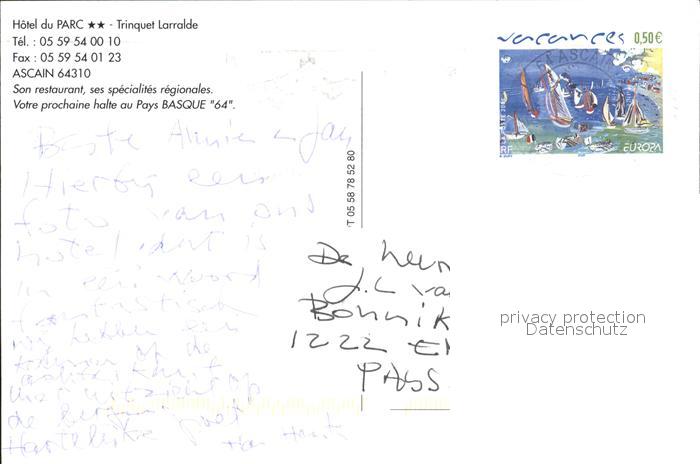 Hôtel du PARC ★★ - Trinquet Larralde
Tél. : 05 59 54 00 10
Fax : 05 59 54 01 23
ASCAIN 64310
Son restaurant, ses spécialités régionales.
Votre prochaine halte au Pays BASQUE "64".
vacances 0,50€
ASCAIN
RF EUROPA
Beste en Jan
Hierbij een
foto van ons
hotel dat is
in één woord
fantastisch
We hebben een
kamer op de
uitzicht op
de bergen
Hartelijke groet
T 05 58 78 52 80
De heer
J.C. va
Bonnik
1222 E
PASS
privacy protection
Datenschutz